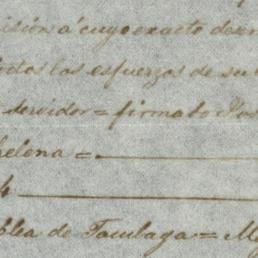 ision á cuyo exacto
todos los esfuerzos de su
servidor = firmado
helena =
blea de Tacubaya = M